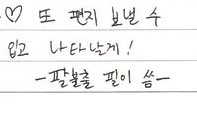 ♡ 또 편지 보낼 수
입고 나타날게!
-팔불출 필이 씀-